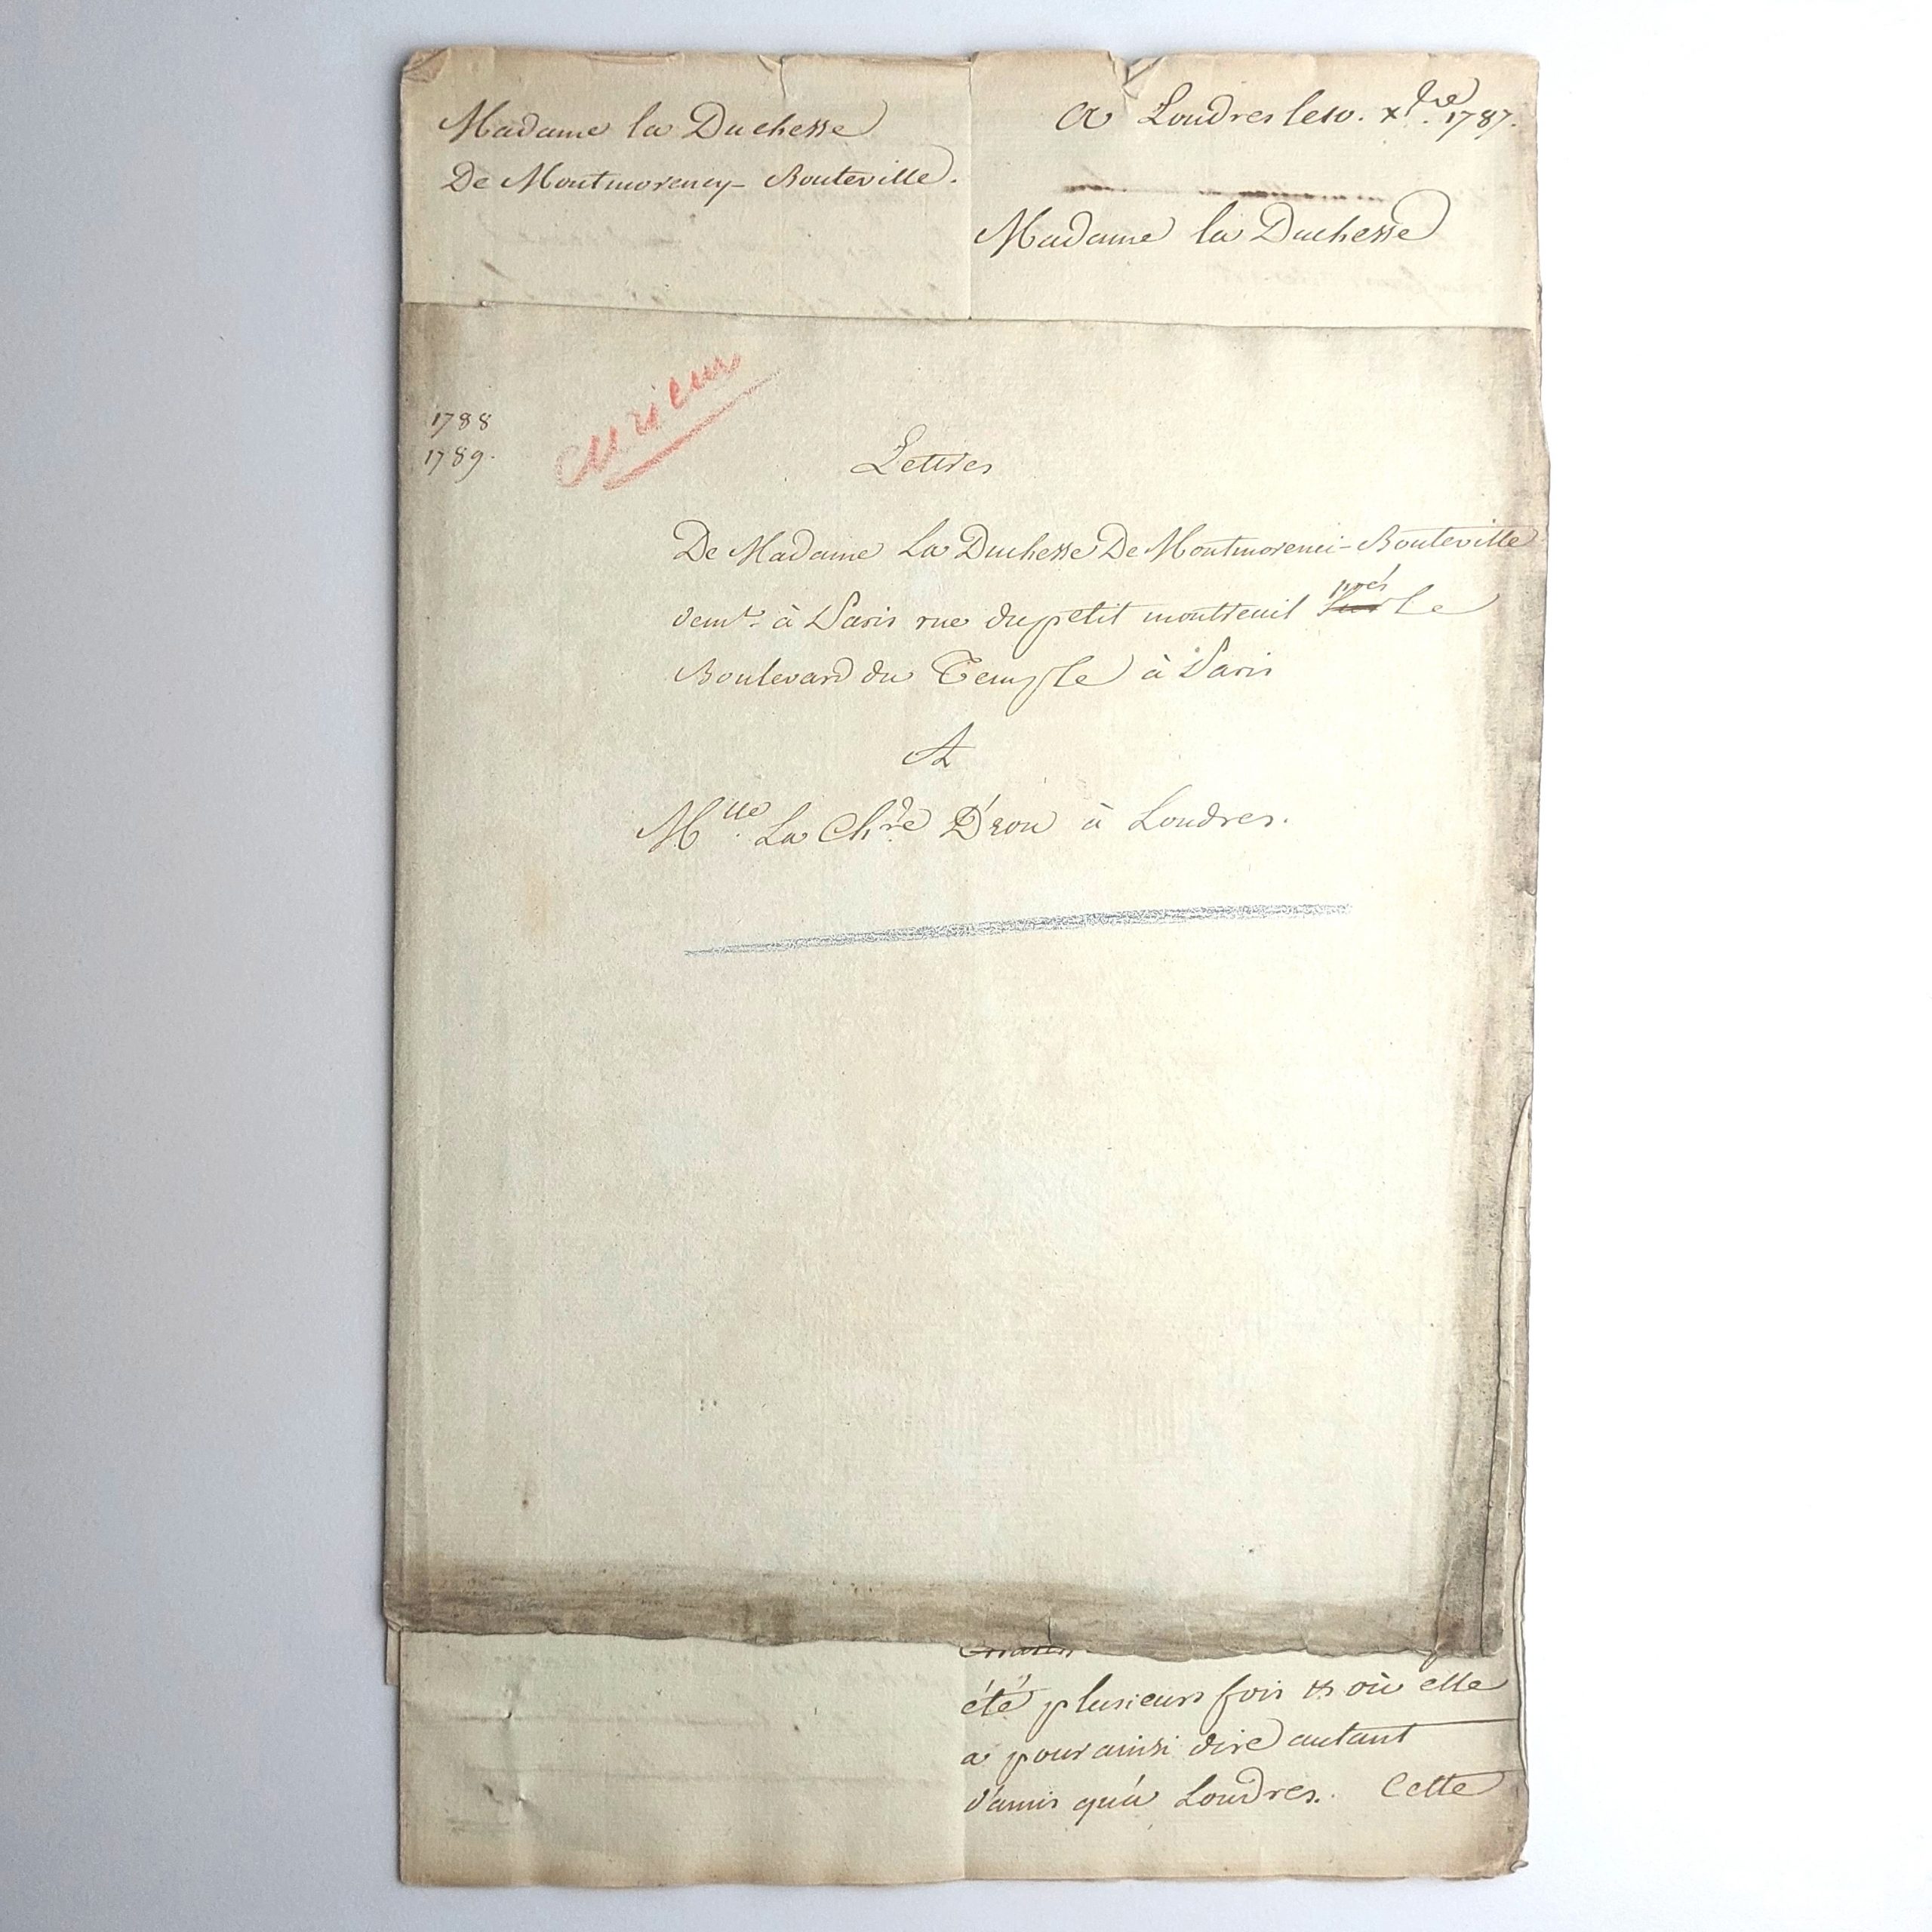 Madame la Duchesse
De Montmorency-Bouteville.
A Londres le 10. xbre 1787.
Madame la Duchesse
1788
1789.
curieux
Lettres
De Madame La Duchesse De Montmorenci-Bouteville
demt. à Paris rue du petit moutreuil près le
Boulevard du Temple à Paris
A
Mlle. La Chre D'éon à Londres.
été plusieurs fois & où elle
a pour ainsi dire autant
d'amis qu'à Londres. Cette